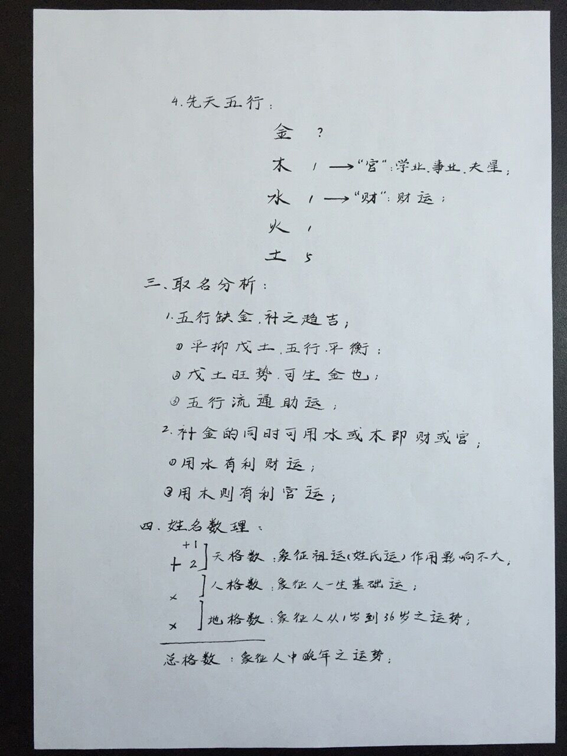 4.先天五行：
金 ?
木 1 → "官":学业.事业.夫星；
水 1 → "财":财运；
火 1
土 5
三.取名分析：
1.五行缺金.补之趋吉；
①平抑戊土.五行平衡；
②戊土旺势.可生金也；
③五行流通助运；
2.补金的同时可用水或木即财或官；
①用水有利财运；
②用木则有利官运；
四.姓名数理：
+1
+2 ]天格数:象征祖运(姓氏运)作用影响不大.
× ]人格数:象征人一生基础运；
× ]地格数:象征人从1岁到36岁之运势；
总格数:象征人中晚年之运势；